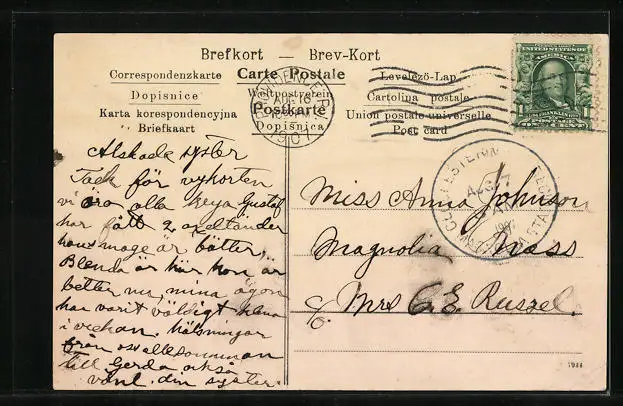 Brefkort — Brev-Kort
Correspondenzkarte Carte Postale Levelezö-Lap
Dopisnice Weltpostverein Cartolina postale
Karta korespondencyjna Postkarte Union postale universelle
Briefkaart Dopisnica Post card
PROVIDENCE, R.I.
AUG 16
1907
UNITED STATES OF AMERICA
1 1
ONE CENT
1907
Alskade syster
Tack för vykorten
vi äro alla krya Gustaf
har fått 2 ondtänder
hans mage är bätter,
Blenda är här hon är
better nu, mina ögon
har varit väldigt klena
i veckan. Hälsningar
från oss allesamman
till Gerda också
vänl. din syster.
Miss Anna Johnson
Magnolia Mass
c/o Mrs C. E. Russel.